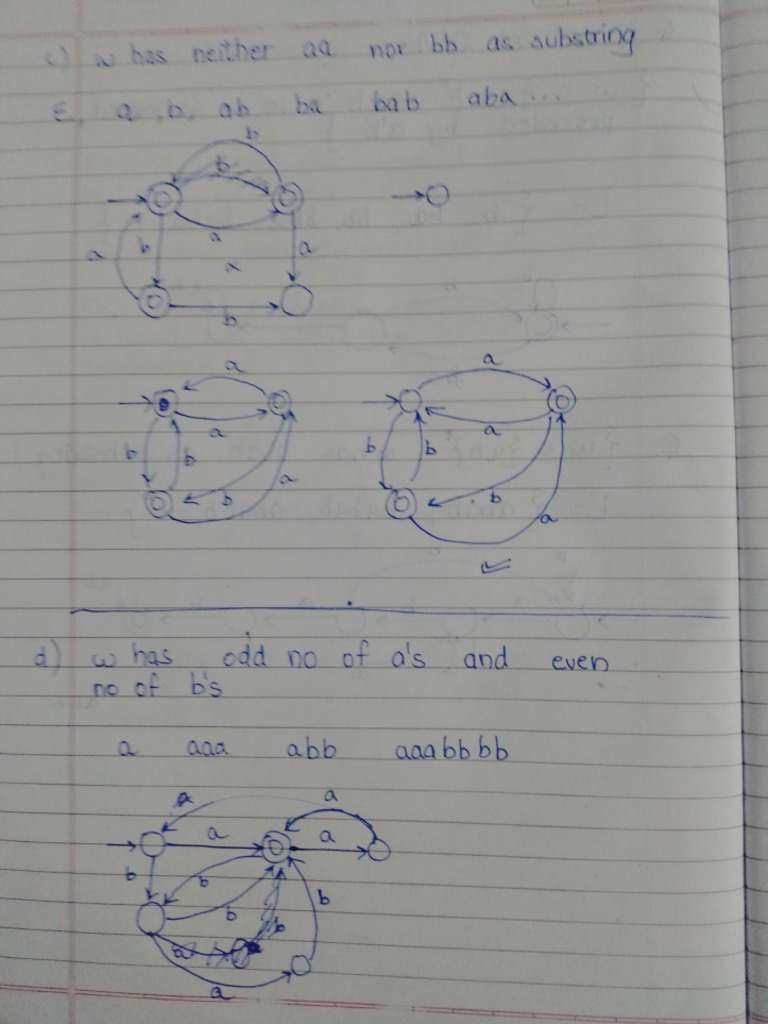 c) w has neither aa nor bb as substring
ε, a, b, ab ba bab aba...
b
b
a
b
a
a
b
a
a
b
b
b
a
a
a
b
b
b
a
d) w has odd no of a's and even
no of b's
a aaa abb aaabbbb
a
a
a
a
b
b
b
b
a